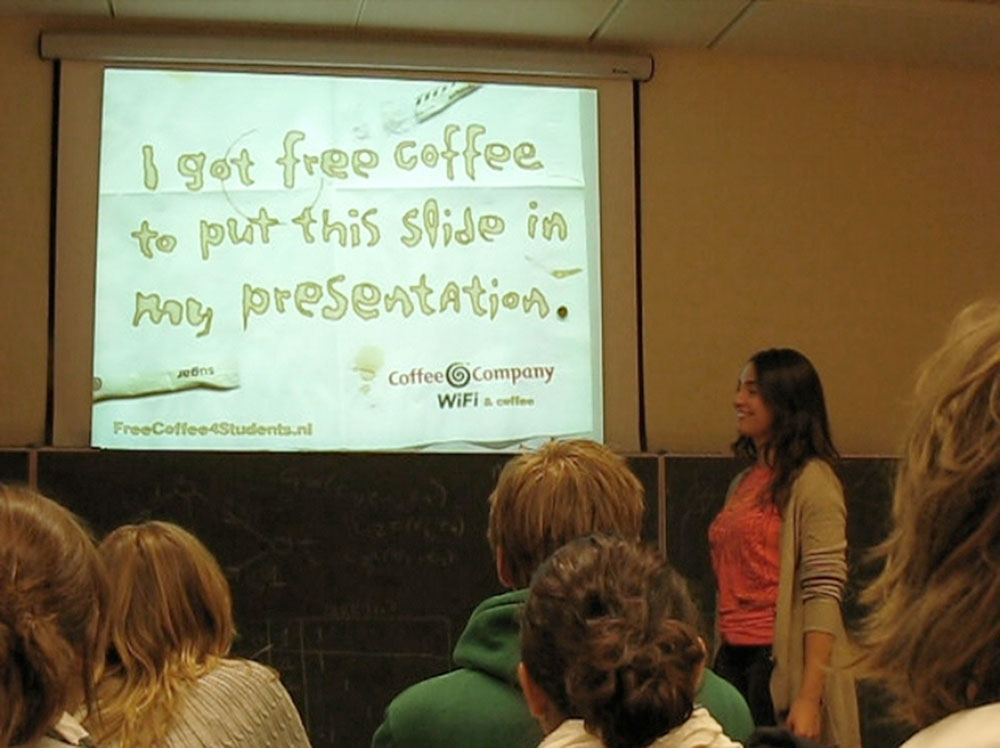 I got free coffee
to put this slide in
my presentation.
Coffee Company
WiFi & coffee
FreeCoffee4Students.nl